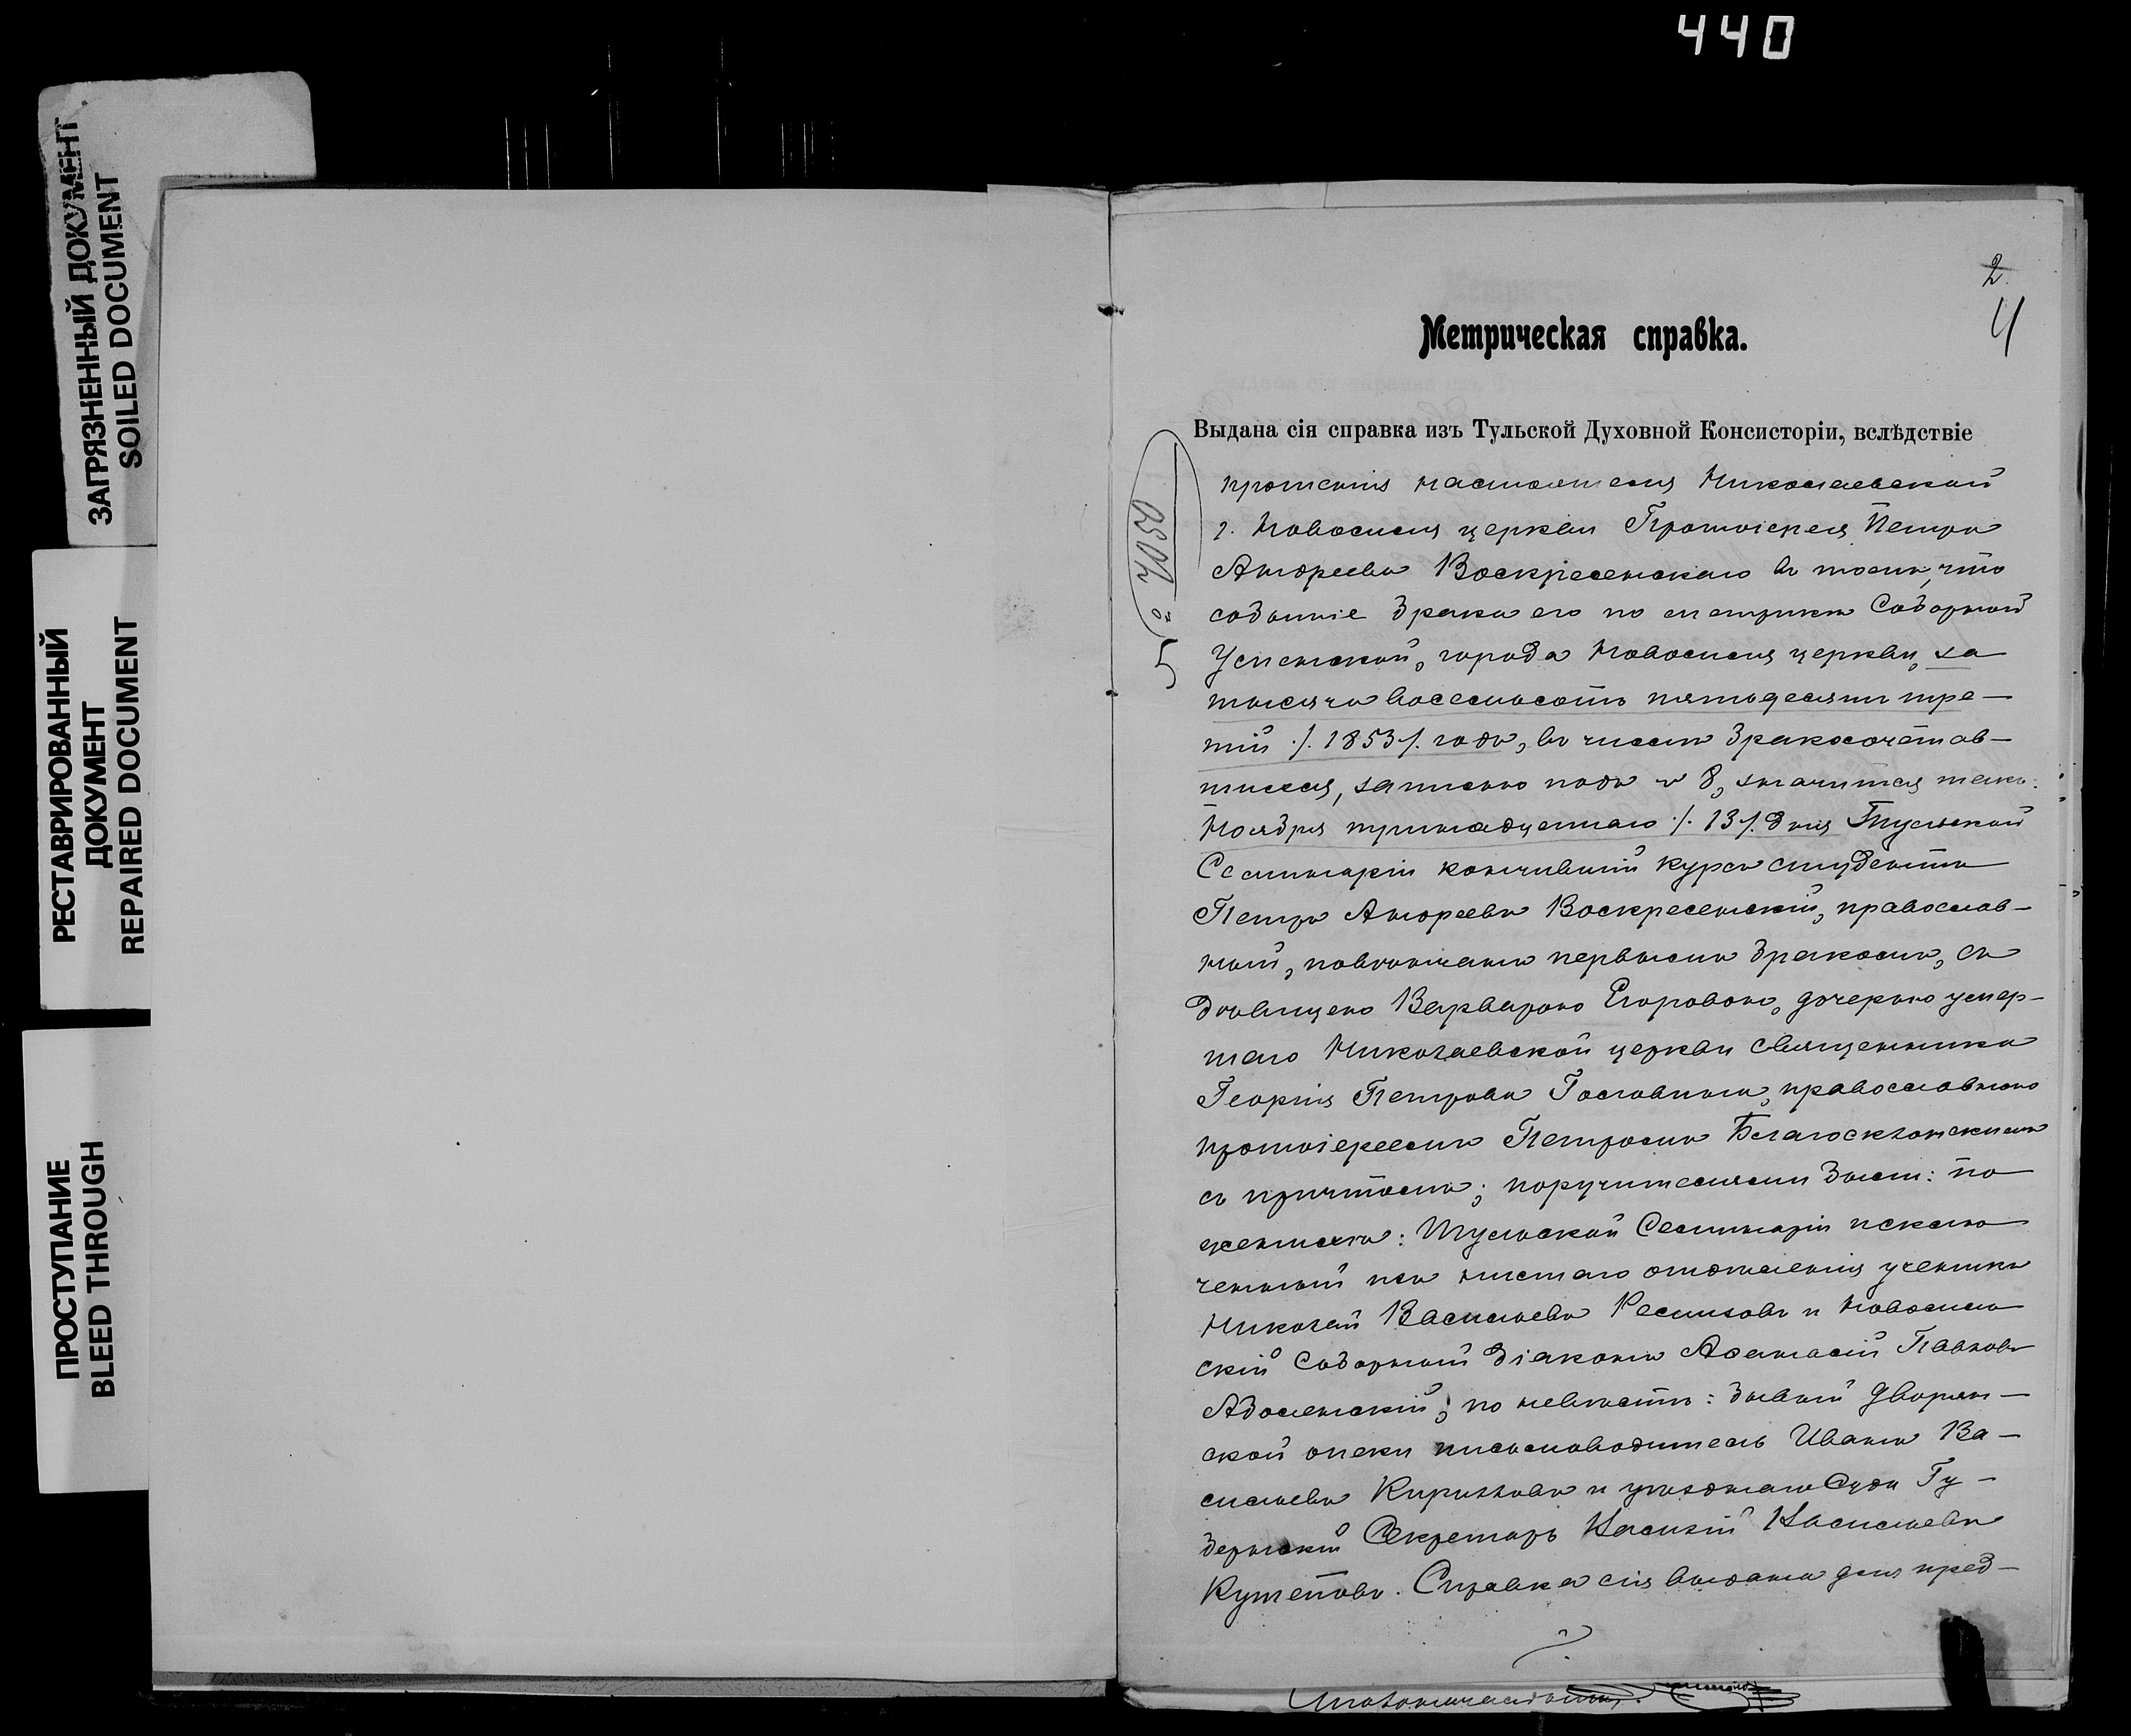 440
ЗАГРЯЗНЕННЫЙ ДОКУМЕНТ
SOILED DOCUMENT
РЕСТАВРИРОВАННЫЙ
ДОКУМЕНТ
REPAIRED DOCUMENT
ПРОСТУПАНИЕ
BLEED THROUGH
2
4
Метрическая справка.
Выдана сія справка изъ Тульской Духовной Консисторіи, вслѣдствіе
№ 7050
5
прошенія настоятеля Николаевской
г. Новосиля церкви Протоіерея Петра
Андреева Воскресенскаго въ томъ, что
событіе брака его по метрикѣ Соборной
Успенской, города Новосиля церкви, за
тысяча восемьсотъ пятьдесятъ тре-
тій /. 1853 /. годъ, въ числѣ бракосочетав-
шихся, записью подъ № 8, значится такъ:
Ноября тринадцатаго /. 13 /. дня Тульской
Семинаріи кончившій курсъ студентъ
Петръ Андреевъ Воскресенскій, православ-
ный, повѣнчанъ первымъ бракомъ, съ
дѣвицею Варварою Егоровою, дочерью умер-
шаго Николаевской церкви священника
Георгія Петрова Гостовымъ, православною
протоіереемъ Петромъ Благосклонскимъ
съ причтомъ; поручителями были: по
женихѣ: Тульской Семинаріи исклю
ченный изъ низшаго отдѣленія ученикъ
Николай Васильевъ Ремизовъ и Новосиль
скій Соборный діаконъ Аѳанасій Павловъ
Абаленскій; по невѣстѣ: бывшій дворян-
ской опеки письмоводитель Иванъ Ва-
сильевъ Кирилловъ и уѣзднаго Суда Гу-
бернскій Секретарь Василій Васильевъ
Кутеповъ. Справка сія выдана для пред-